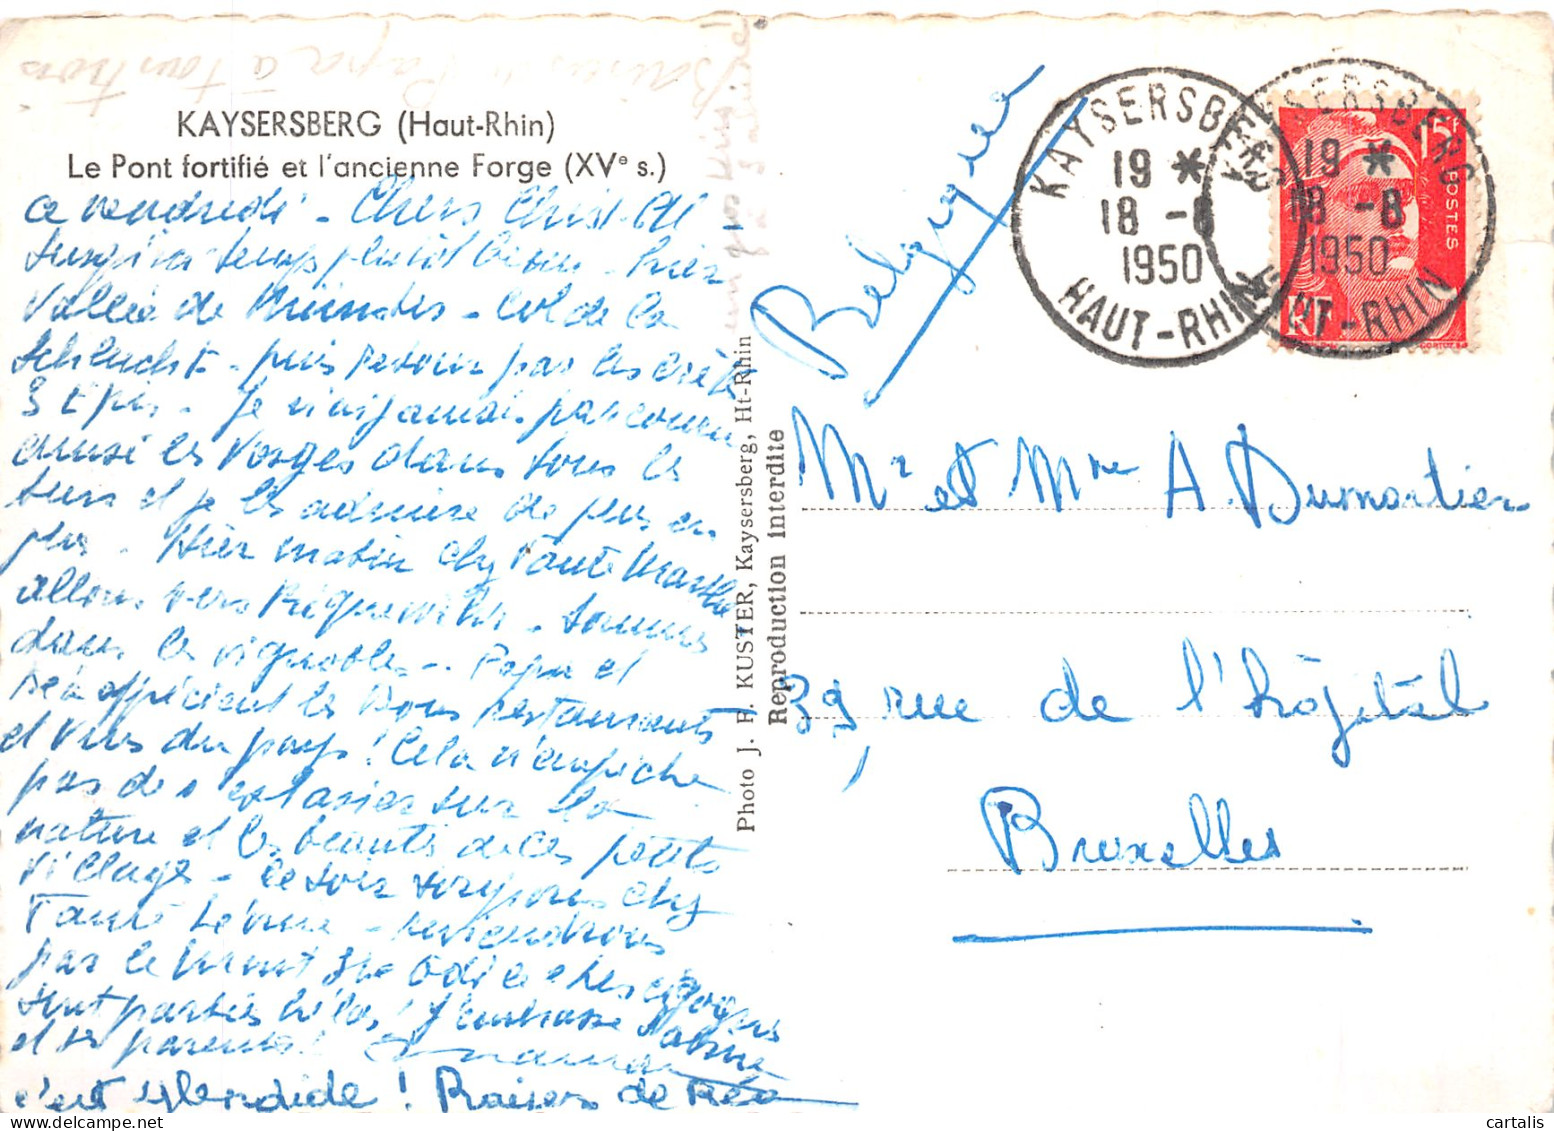 Baisers de Papa à tous trois
KAYSERSBERG (Haut-Rhin)
Le Pont fortifié et l'ancienne Forge (XVe s.)
ce vendredi - Chers
Jusqu'ici temps plutôt bien - hier
Vallée de Münster - Col de la
Schlucht - puis retour par les crêtes
3 Epis - Je n'ai jamais parcouru
ainsi les Vosges dans tous les
sens et je les admire de plus en
plus - Hier matin chez Tante Marthe
allons vers Riquewihr - sommes
dans les vignobles - Papa et
Réa apprécient les bons restaurants
et vins du pays ! Cela n'empêche
pas de s'extasier sur la
nature et les beautés de ces petits
village - Ce soir soupons chez
Tante - reviendrons
par le Mont Ste Odile - les cigognes
sont parties hélas ! J'embrasse
et ses parents ! Maman
c'est splendide ! Baisers de Réa
Photo J. H. KUSTER, Kaysersberg, Ht-Rhin
Reproduction interdite
Belgique
KAYSERSBERG
19 *
18 -8
1950
HAUT-RHIN
KAYSERSBERG
19 *
18 -8
1950
HAUT-RHIN
15F
POSTES
RF
Mr et Mme A. Dumortier
39, rue de l'hôpital
Bruxelles
cartalis